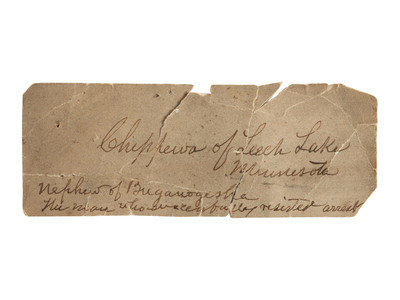 Chippewa of Leech Lake
Minnesota
Nephew of Buganogesha
The man who successfully resisted arrest